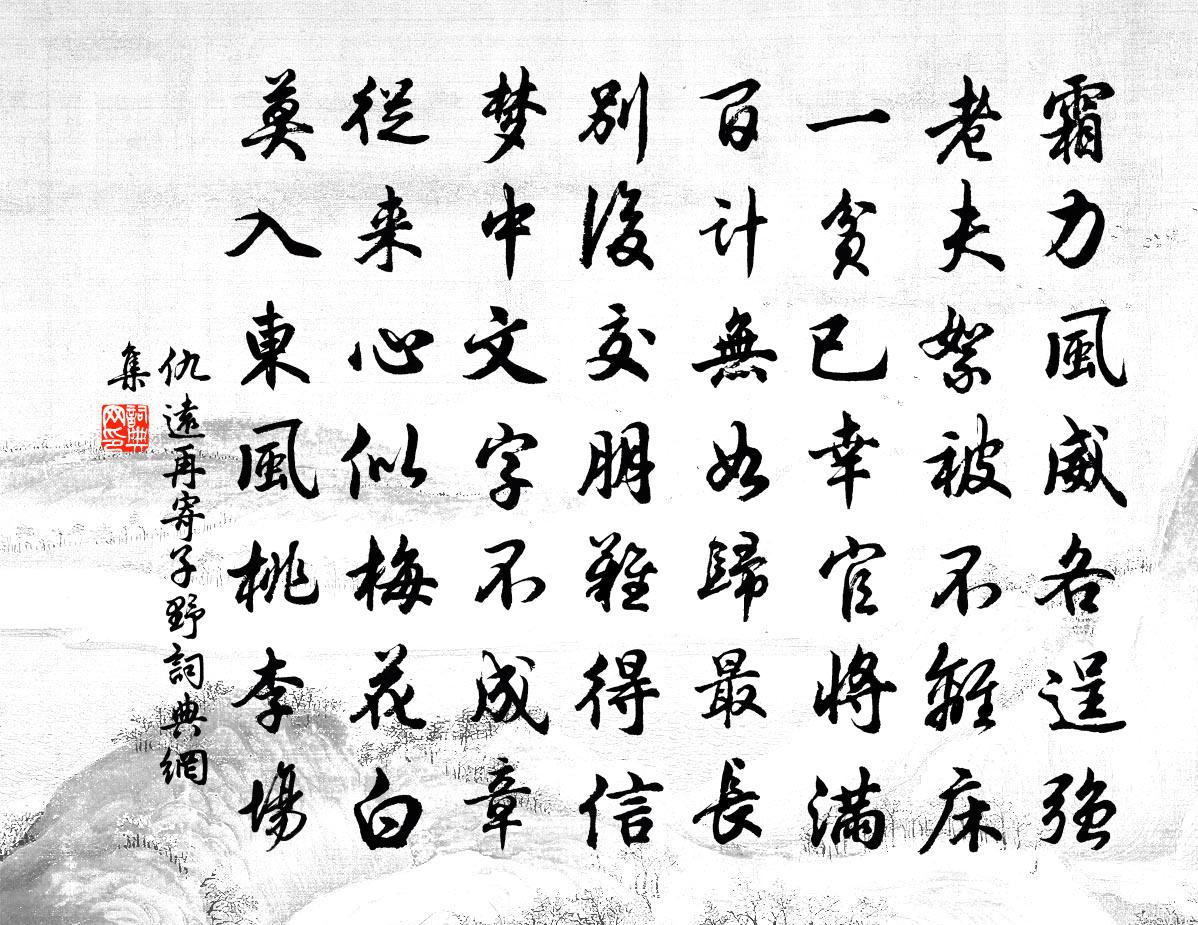 霜力風威各逞強
老夫絮被不離床
一貧已幸官將滿
百計無如歸最長
別後交朋難得信
梦中文字不成章
從来心似梅花白
莫入東風桃李場
仇遠再寄子野詞典網
集
詞典网印